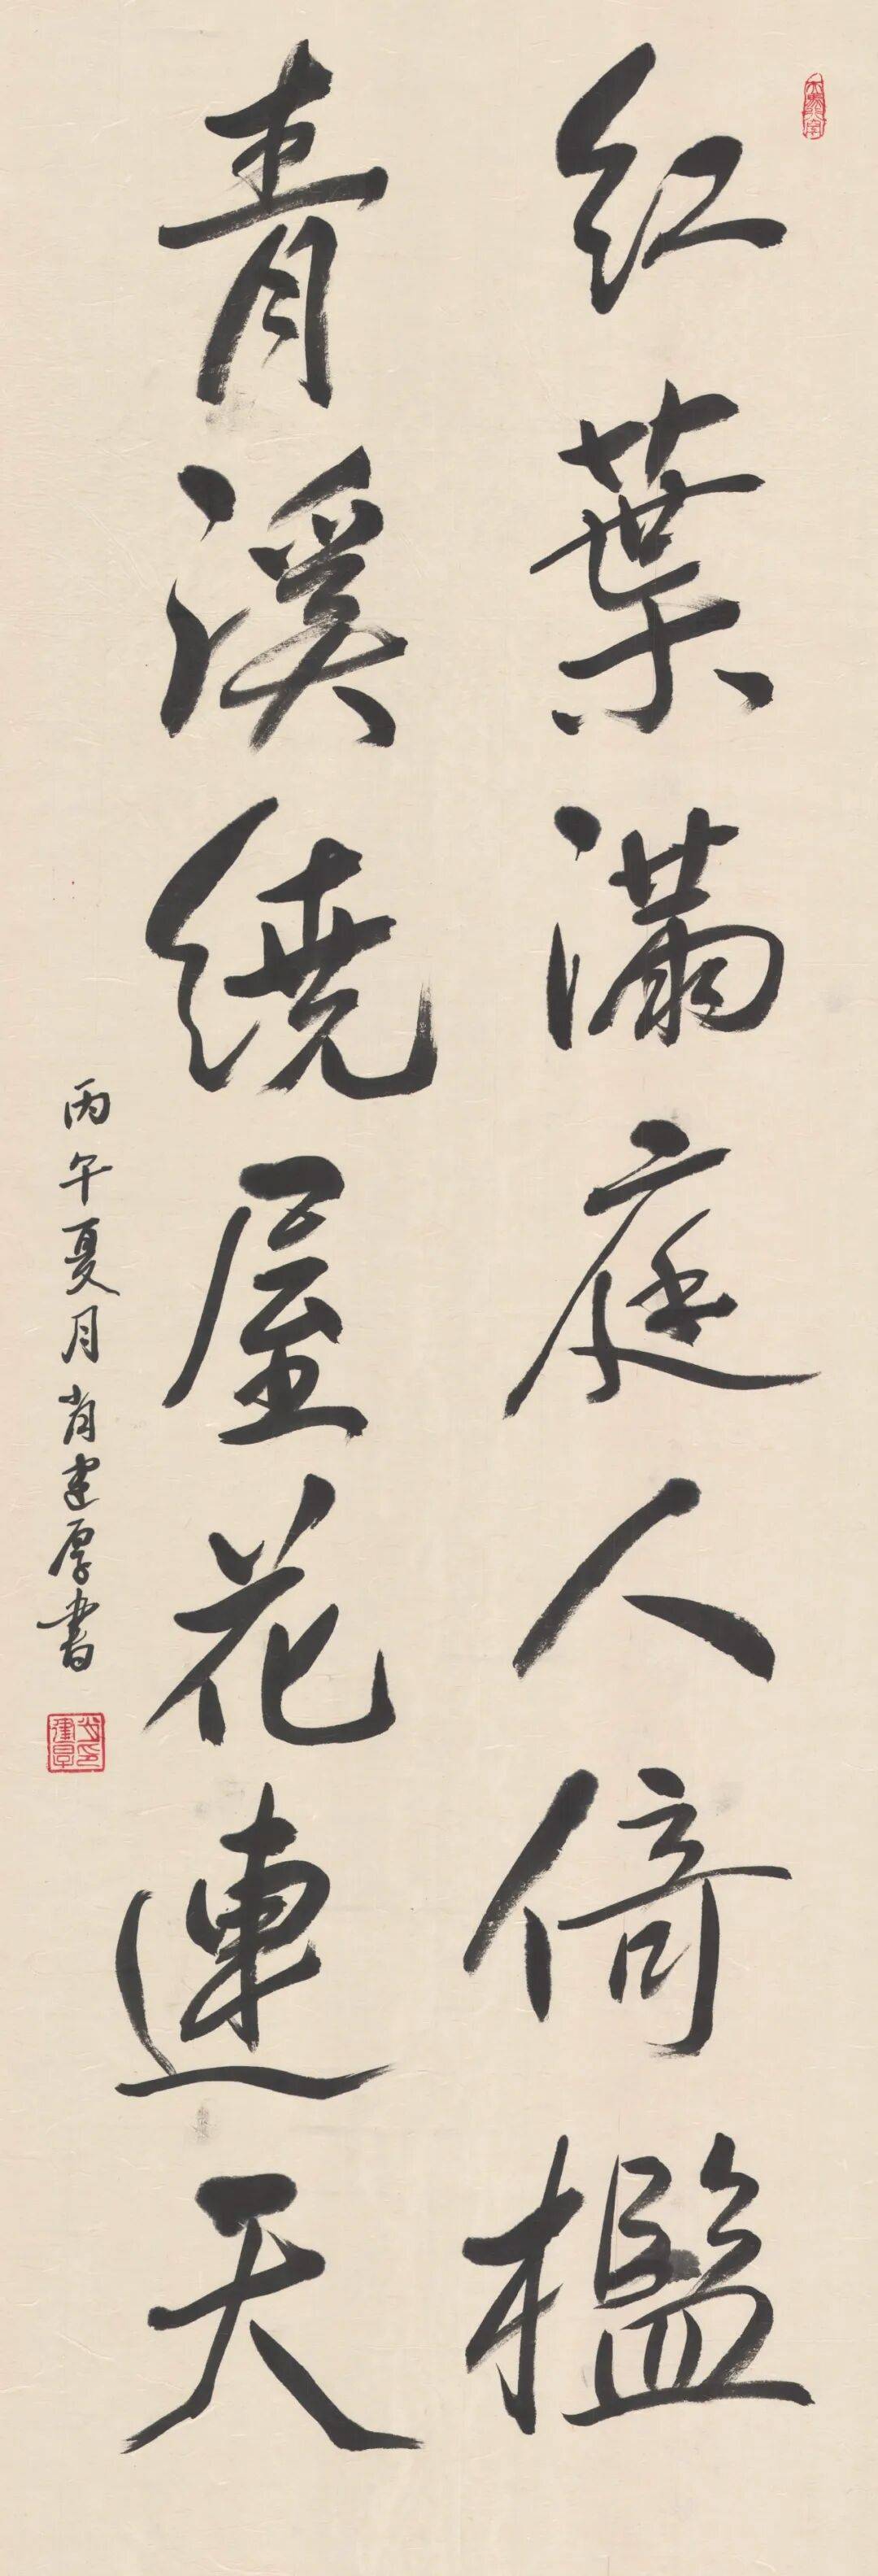 红葉满庭人倚檻
青溪繞屋花連天
丙午夏月肖建厚書